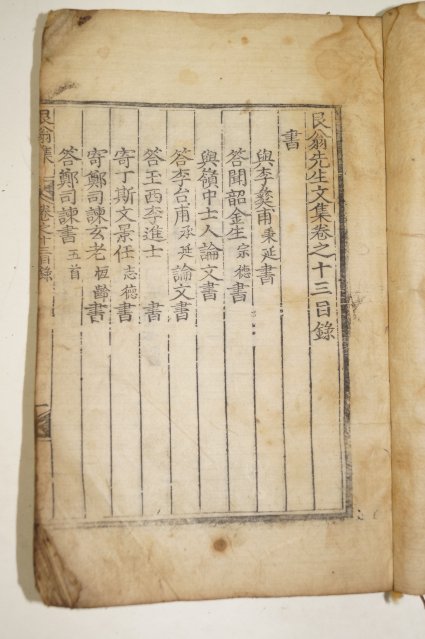 艮翁先生文集卷之十三目錄
書
與李彛甫秉延書
答聞韶金生宗德書
與嶺中士人論文書
答李台甫承延論文書
答玉西李進士書
寄丁斯文景任志德書
寄鄭司諫玄老恒齡書
答鄭司諫書五首
艮翁集卷之十三目錄